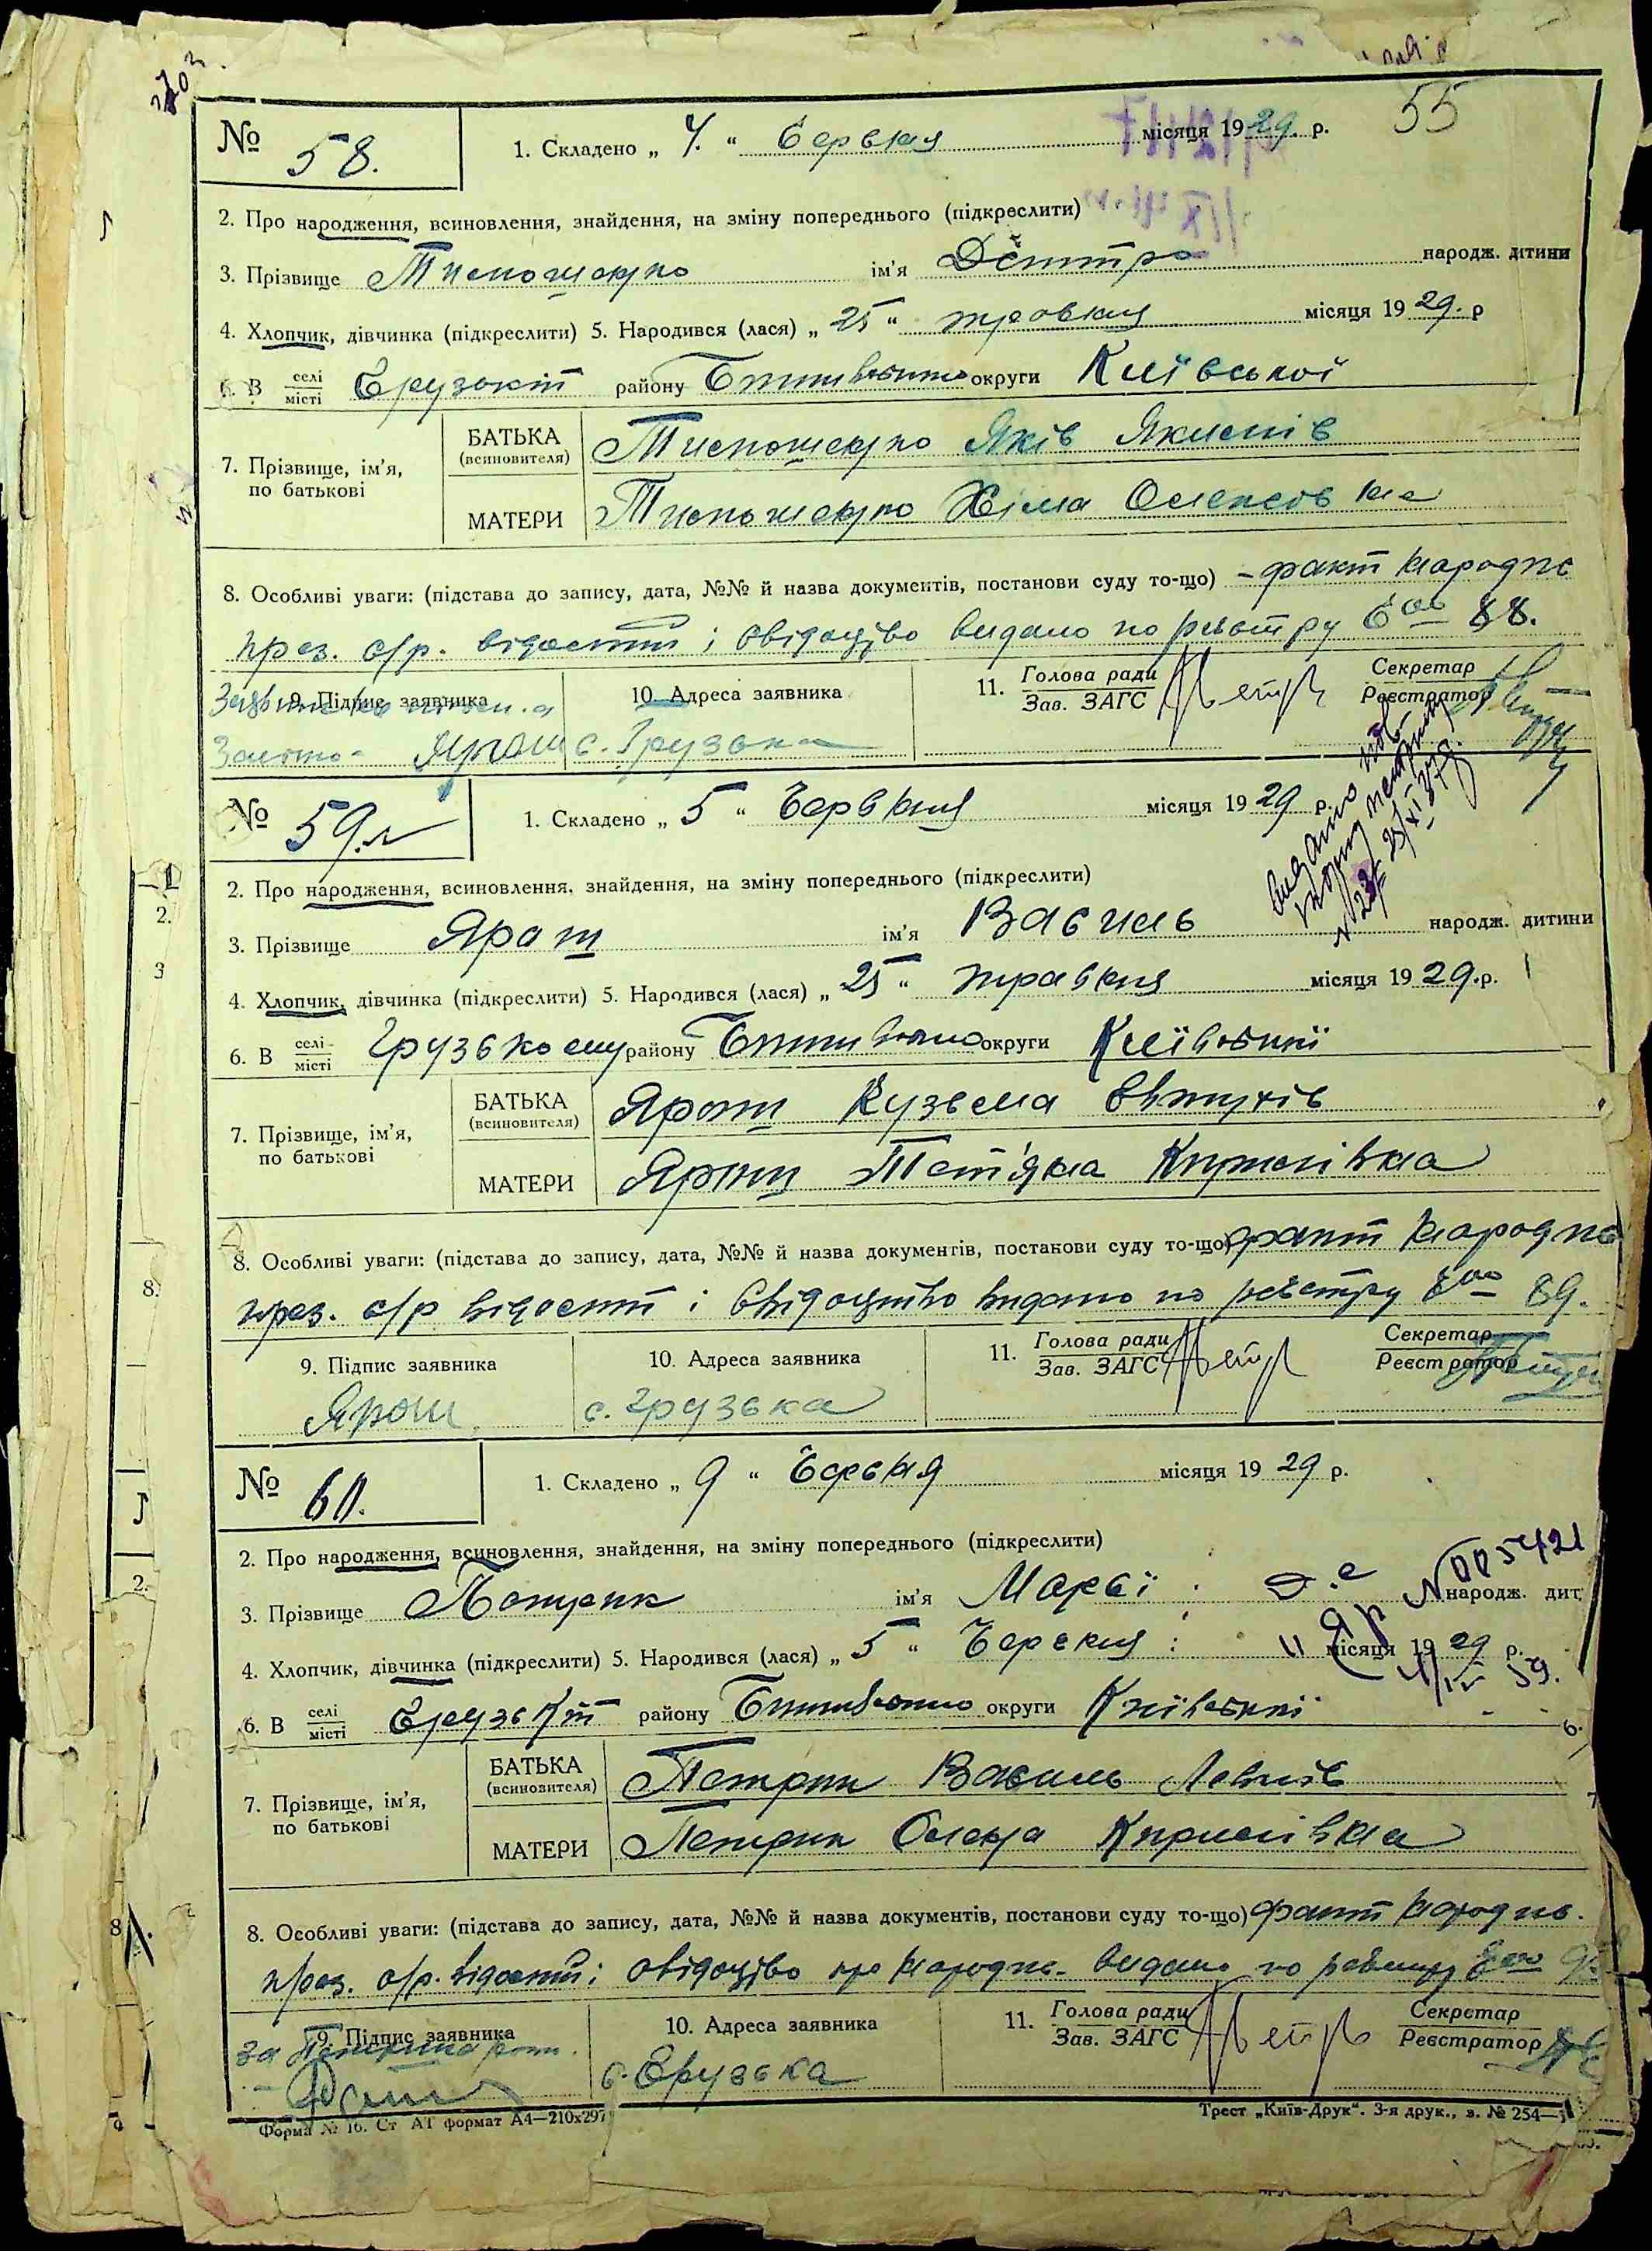 55
№ 58. 1. Складено „ 4. “ Червня місяця 1929. р.
2. Про народження, всиновлення, знайдення, на зміну попереднього (підкреслити)
3. Прізвище ім'я Дмитро народж. дитини
4. Хлопчик, дівчинка (підкреслити) 5. Народився (лася) „ 25 “ травня місяця 1929. р
6. В селі місті Грузькій району округи Київської
7. Прізвище, ім'я, по батькові
БАТЬКА (всиновителя) Яків Якимів
МАТЕРИ Хима
8. Особливі уваги: (підстава до запису, дата, №№ й назва документів, постанови суду то-що) – факт народж
през. с/р. відомий і свідоцтво видано по реєстру 88.
9. Підпис заявника 10. Адреса заявника 11. Голова ради Зав. ЗАГС Секретар Реєстратор
Ярош с. Грузька
№ 59. 1. Складено „ 5 “ Червня місяця 1929 р.
видано
повторну метрику
2. Про народження, всиновлення, знайдення, на зміну попереднього (підкреслити)
3. Прізвище Ярош ім'я Василь народж. дитини
4. Хлопчик, дівчинка (підкреслити) 5. Народився (лася) „ 25 “ травня місяця 1929. р.
6. В селі місті Грузькому району округи Київської
7. Прізвище, ім'я, по батькові
БАТЬКА (всиновителя) Ярош Кузьма Євтухів
МАТЕРИ Ярош Тетяна Кирилівна
8. Особливі уваги: (підстава до запису, дата, №№ й назва документів, постанови суду то-що) факт народж
през. с/р відомий і свідоцтво видано по реєстру 89.
9. Підпис заявника 10. Адреса заявника 11. Голова ради Зав. ЗАГС Секретар Реєстратор
Ярош. с. Грузька
№ 60. 1. Складено „ 9 “ Червня місяця 1929 р.
2. Про народження, всиновлення, знайдення, на зміну попереднього (підкреслити)
3. Прізвище Петрик ім'я народж. дит.
4. Хлопчик, дівчинка (підкреслити) 5. Народився (лася) „ 5 “ Червня місяця 1929 р.
6. В селі місті Грузькій району округи Київської
7. Прізвище, ім'я, по батькові
БАТЬКА (всиновителя) Петрик Василь
МАТЕРИ Петрик Олена Кирилівна
8. Особливі уваги: (підстава до запису, дата, №№ й назва документів, постанови суду то-що) факт народж.
през. с/р. відомий і свідоцтво про народж. видано по реєстру
9. Підпис заявника 10. Адреса заявника 11. Голова ради Зав. ЗАГС Секретар Реєстратор
с. Грузька
Форма № 16. Ст АТ формат А4—210х297 Трест „Київ-Друк“. 3-я друк., з. № 254—